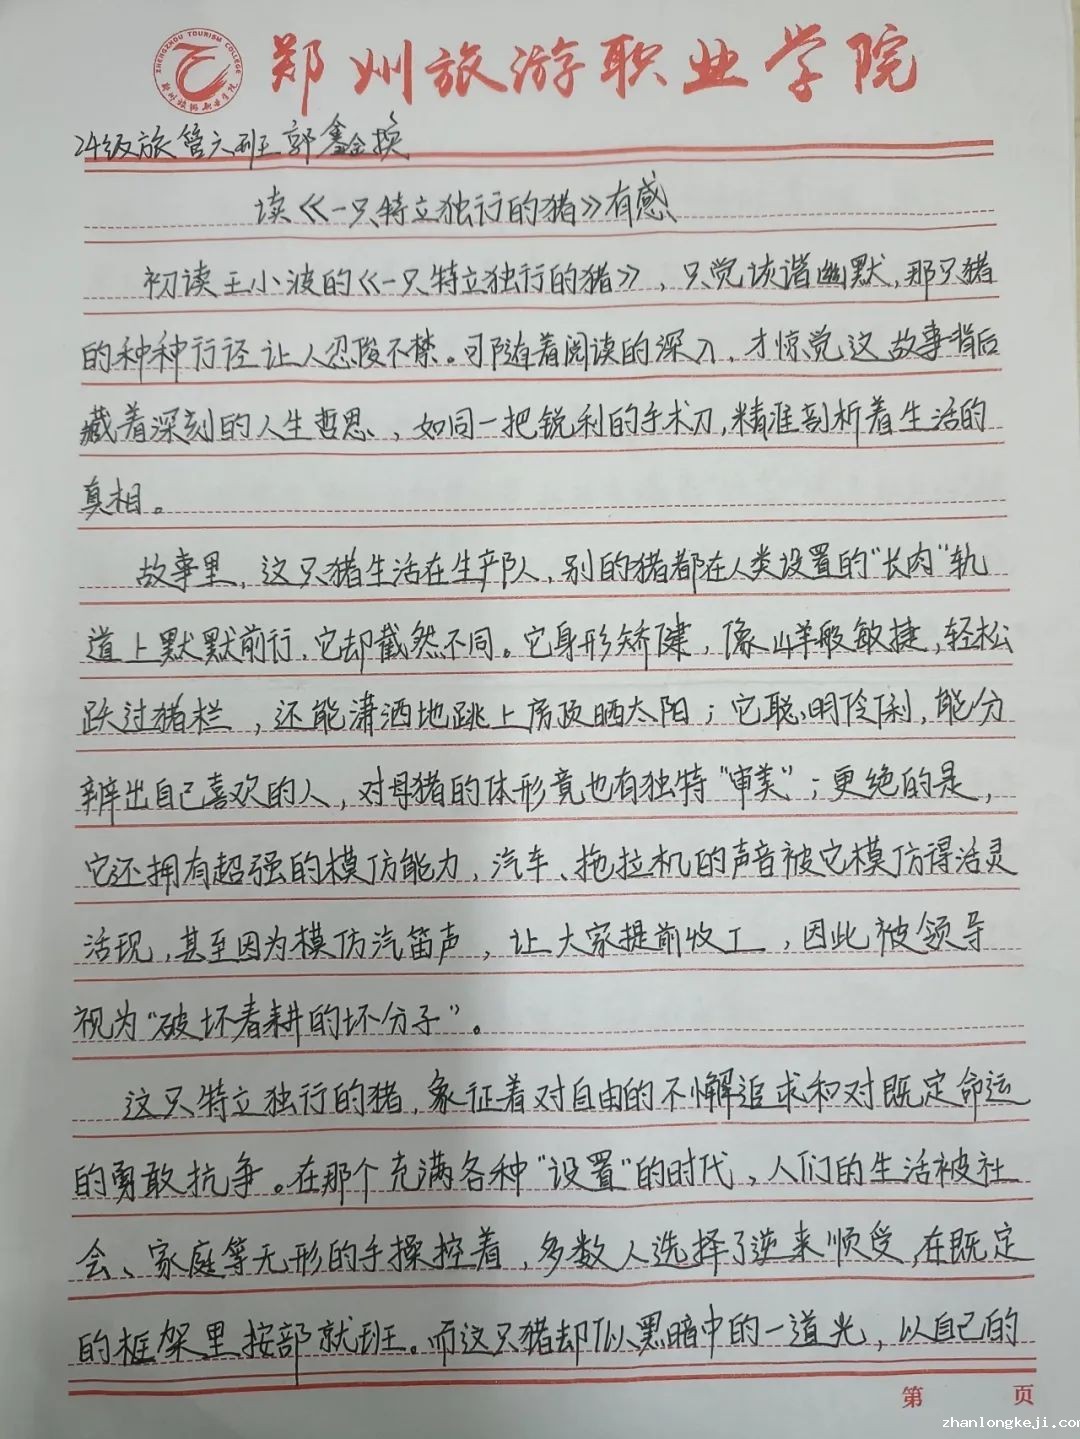 ZHENGZHOU TOURISM COLLEGE
郑州旅游职业学院
郑州旅游职业学院
24级旅管六班郭鑫换
读《一只特立独行的猪》有感
初读王小波的《一只特立独行的猪》，只觉诙谐幽默，那只猪
的种种行径让人忍俊不禁。可随着阅读的深入，才惊觉这故事背后
藏着深刻的人生哲思，如同一把锐利的手术刀，精准剖析着生活的
真相。
故事里，这只猪生活在生产队，别的猪都在人类设置的“长肉”轨
道上默默前行，它却截然不同。它身形矫健，像山羊般敏捷，轻松
跃过猪栏，还能潇洒地跳上房顶晒太阳；它聪明伶俐，能分
辨出自己喜欢的人，对母猪的体形竟也有独特“审美”；更绝的是，
它还拥有超强的模仿能力，汽车、拖拉机的声音被它模仿得活灵
活现，甚至因为模仿汽笛声，让大家提前收工，因此被领导
视为“破坏春耕的坏分子”。
这只特立独行的猪，象征着对自由的不懈追求和对既定命运
的勇敢抗争。在那个充满各种“设置”的时代，人们的生活被社
会、家庭等无形的手操控着，多数人选择了逆来顺受，在既定
的框架里按部就班。而这只猪却似黑暗中的一道光，以自己的
第 页
zhanlongkeji.com